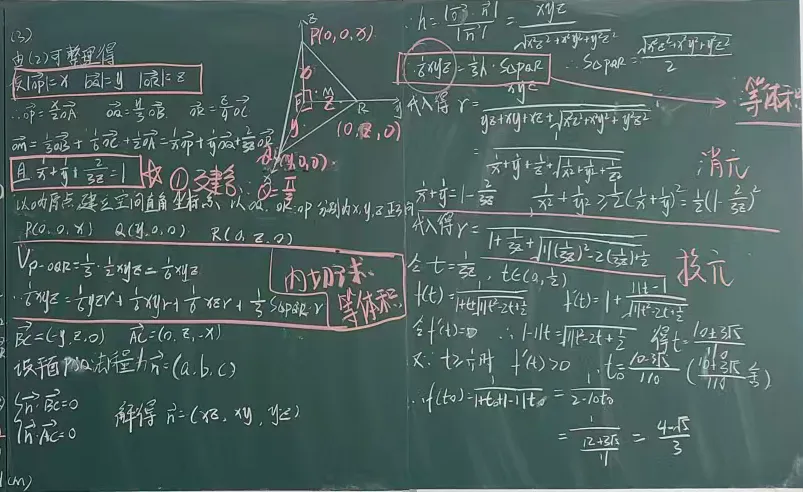 (3)
由(2)可整理得
设|OP|=x |OQ|=y |OR|=z
∴OP=x/2 OA OQ=y/3 OB OR=z/4 OC
且 1/x+1/y+2/3z=1 ☆ ①建系
以O为原点,建立空间直角坐标系,以OQ,OR,OP分别为x,y,z正方向
P(0,0,x) Q(y,0,0) R(0,z,0)
V_{P-OQR}=1/3·1/2xyz=1/6xyz
∴1/6xyz=1/6yzr+1/6xyr+1/6xzr+1/3S△PQR·r
内切球
等体积
BC=(-y,z,0) AC=(0,z,-x)
设平面PQR法程为n=(a,b,c)
n·BC=0
n·AC=0
解得 n=(xz,xy,yz)
z
P(0,0,x)
x
M
z
R
y
(0,z,0)
Q(y,0,0)
∴h=|OP·n|/|n|=xyz/√(x²z²+x²y²+y²z²)
∴1/6xyz=1/3h·S△PQR ∴S△PQR=√(x²z²+x²y²+y²z²)/2
等体积
代入得r=xyz/(yz+xy+xz+√(x²z²+x²y²+y²z²))
=1/(1/x+1/y+1/z+√(1/x²+1/y²+1/z²))
消元
1/x+1/y=1-2/3z, 1/x²+1/y²≥1/2(1/x+1/y)²=1/2(1-2/3z)²
代入得r=1/(1+1/3z+√(11(1/3z)²-2(1/3z)+1/2))
换元
令t=1/3z, t∈(0,1/2)
f(t)=1/(1+t+√(11t²-2t+1/2)) f'(t)=1+(11t-1)/√(11t²-2t+1/2)
令f'(t)=0 ∴1-11t=√(11t²-2t+1/2) 得t=(10±3√5)/110
f'(t)>0 ∴t₀=(10-3√5)/110 ((10+3√5)/110 舍)
∴f(t₀)=1/(1+t₀+1-11t₀)=1/(2-10t₀)
=1/((12+3√5)/11)=(4-√5)/3